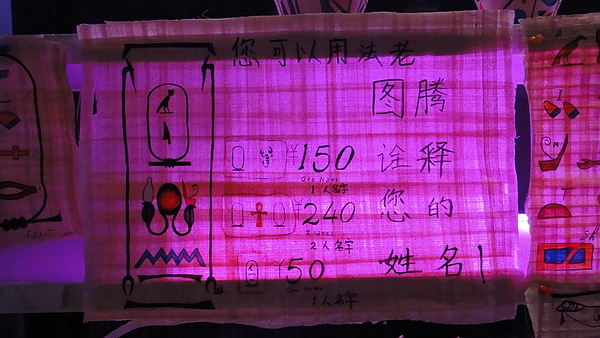 您可以用法老
图腾
诠释
您的
姓名
¥150
One Name
1人名字
¥240
2人名字
¥50
1人名字